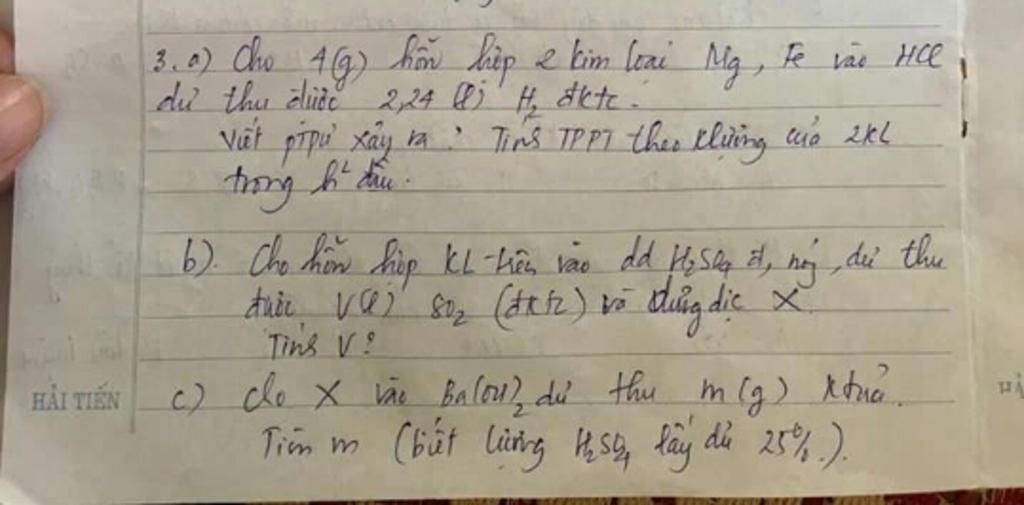 3. a) Cho 4(g) hỗn hợp 2 kim loại Mg, Fe vào HCl
dư thu được 2,24 (l) H₂ đktc.
Viết ptpư xảy ra? Tính TPPT theo klượng của 2KL
trong h² đầu.
b). Cho hỗn hợp KL trên vào dd H₂SO₄ đ, nóng, dư thu
được V(l) SO₂ (đktc) và dung dịc X
Tính V?
c) cho X vào Ba(OH)₂ dư thu m(g) ktủa.
Tính m (biết lượng H₂SO₄ lấy dư 25%.).
HẢI TIẾN